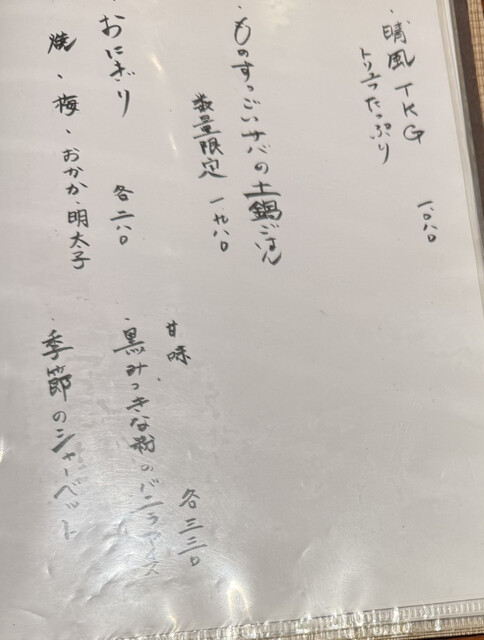 ・晴風TKG
トリュフたっぷり
一〇八〇
・ものすっごいサバの土鍋ごはん
数量限定 一九八〇
・おにぎり
各二八〇
焼、梅、おかか、明太子
甘味
・黒みつきな粉のバニラアイス
各三三〇
・季節のシャーベット